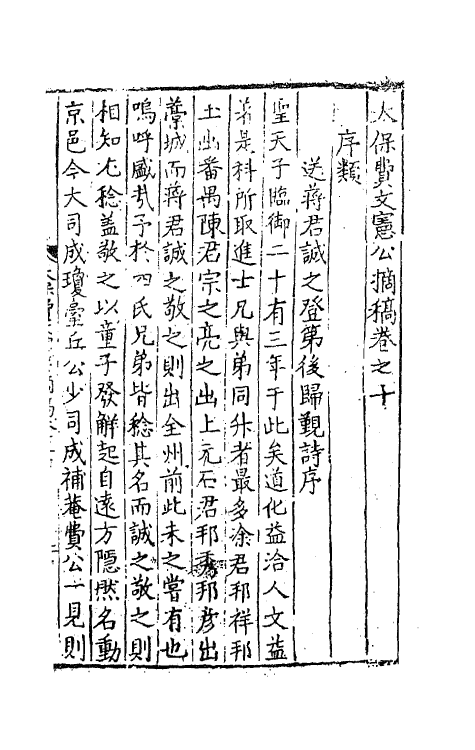 太保費文憲公摘稿卷之十
序類
送蔣君誠之登第後歸覲詩序
聖天子臨御二十有三年于此矣道化益洽人文益
著是科所取進士兄與弟同升者最多凃君邦祥邦
土出番禺陳君宗之亮之出上元石君邦秀邦彦出
藁城而蔣君誠之敬之則出全州前此未之嘗有也
嗚呼盛哉予於四氏兄弟皆稔其名而誠之敬之則
相知尤稔盖敬之以童子發解起自遠方隱然名動
京邑今大司成瓊臺丘公少司成補菴費公一見則